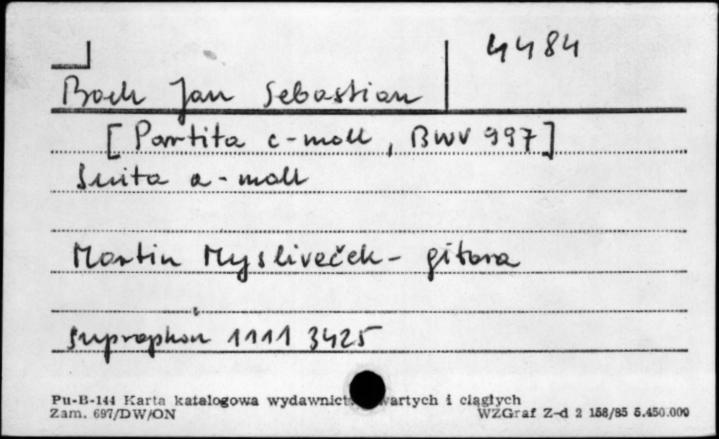 4484
Bach Jan Sebastian
[Partita c-moll, BWV 997]
Suita a-moll
Martin Mysliveček - gitara
Supraphon 1111 3425
Pu-B-144 Karta katalogowa wydawnict wartych i ciągłych
Zam. 697/DW/ON WZGraf Z-d 2 158/85 5.450.000